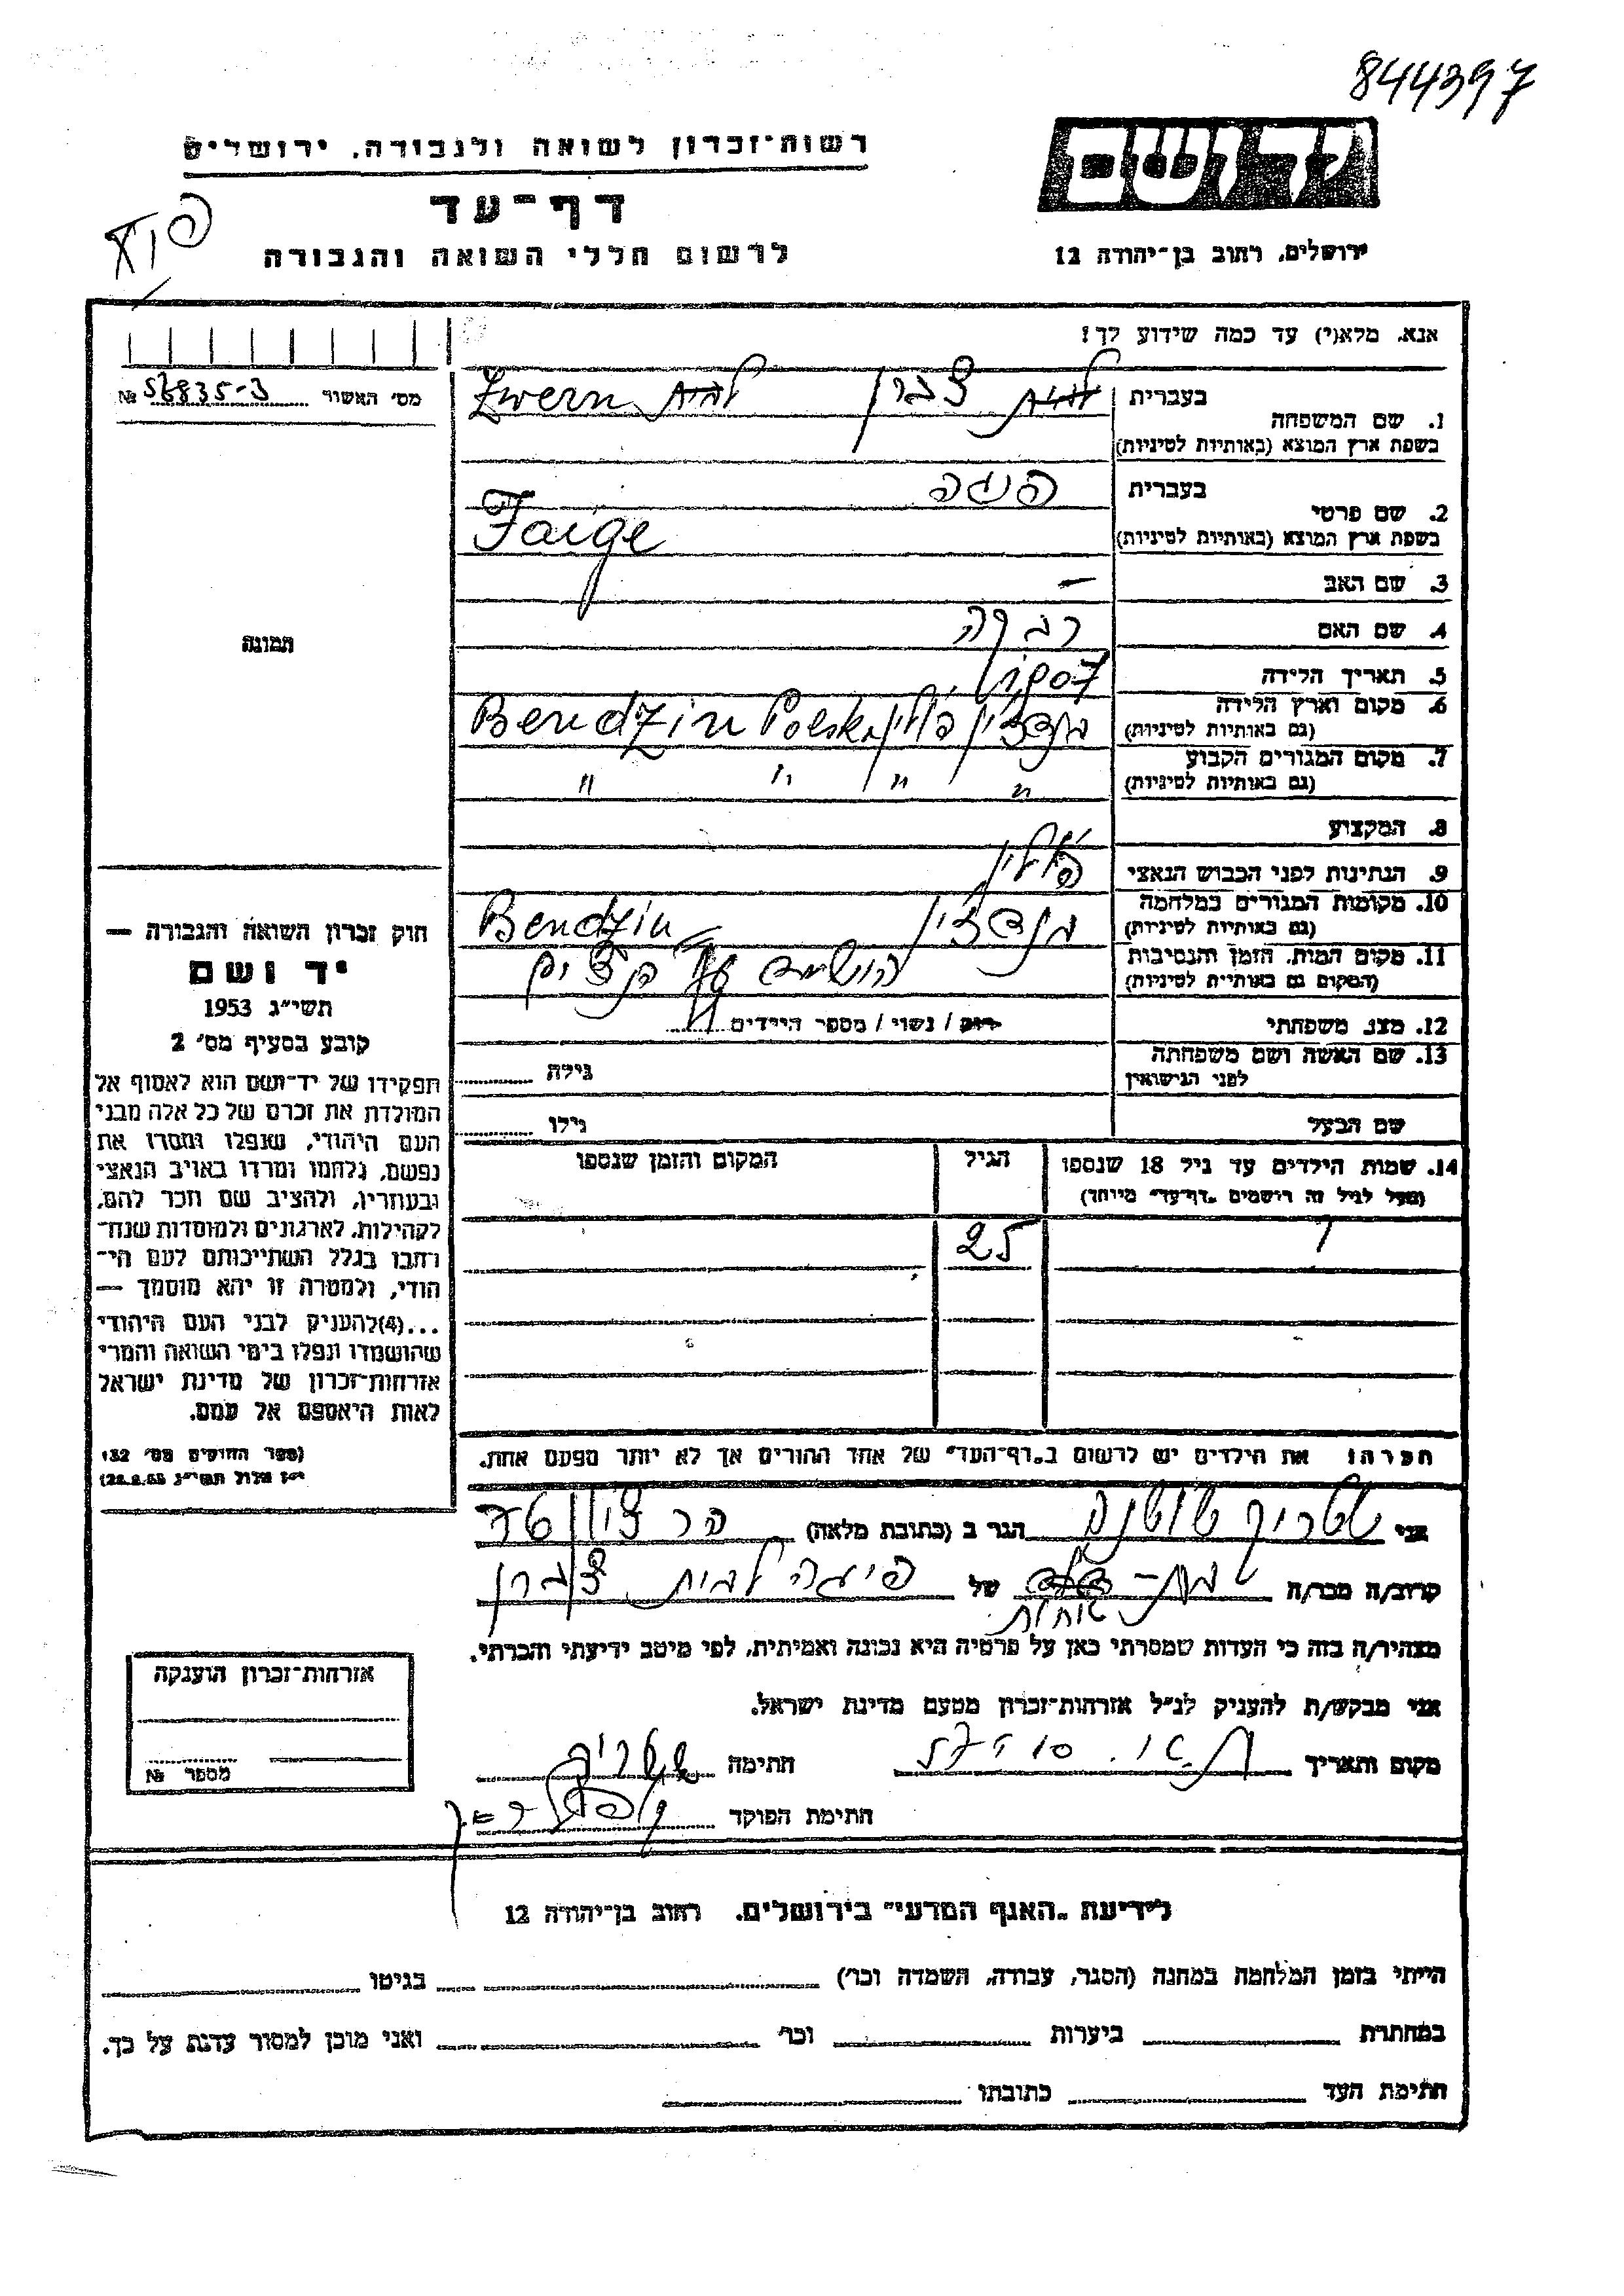 844397
יד ושם
רשות־זכרון לשואה ולגבורה, ירושלים
דף־עד
ירושלים, רחוב בן־יהודה 12
לרשום חללי השואה והגבורה
אנא, מלא(י) עד כמה שידוע לך!
מס׳ האשור № 56835-3
1. שם המשפחה
בעברית צברן לבית Zwern
בשפת ארץ המוצא (באותיות לטיניות)
2. שם פרטי
בעברית פיגה
בשפת ארץ המוצא (באותיות לטיניות) Faige
3. שם האב —
4. שם האם רבקה
5. תאריך הלידה 1907
6. מקום וארץ הלידה
(גם באותיות לטיניות) בנדצין פולין Bendzin Polska
7. מקום המגורים הקבוע
(גם באותיות לטיניות) " " " "
8. המקצוע
9. הנתינות לפני הכבוש הנאצי פולין
10. מקומות המגורים במלחמה
(גם באותיות לטיניות) בנדצין Bendzin
11. מקום המות, הזמן והנסיבות
(המקום גם באותיות לטיניות)
12. מצב משפחתי רווק / נשוי / מספר הילדים
13. שם האשה ושם משפחתה
לפני הנישואין
גילה
שם הבעל
גילו
14. שמות הילדים עד גיל 18 שנספו
(מעל לגיל זה רושמים „דף־עד" מיוחד)
הגיל
המקום והזמן שנספו
25
הערה: את הילדים יש לרשום ב„דף־העד" של אחד ההורים אך לא יותר מפעם אחת.
תמונה
חוק זכרון השואה והגבורה —
יד ושם
תשי״ג 1953
קובע בסעיף מס׳ 2
תפקידו של יד־ושם הוא לאסוף אל
המולדת את זכרם של כל אלה מבני
העם היהודי, שנפלו ומסרו את
נפשם, נלחמו ומרדו באויב הנאצי
ובעוזריו, ולהציב שם וזכר להם,
לקהילות, לארגונים ולמוסדות שנח־
רבו בגלל השתייכותם לעם הי־
הודי, ולמטרה זו יהא מוסמך —
...(4) להעניק לבני העם היהודי
שהושמדו ונפלו בימי השואה והמרי
אזרחות־זכרון של מדינת ישראל
לאות היאספם אל עמם.
(ספר החוקים מס׳ 132
י״ז אלול תשי״ג 28.8.53)
אני שטריך שושנה הגר ב (כתובת מלאה) הר ציון
קרוב/ה מכר/ה בת־ אחות של פיגה לבית צברן
מצהיר/ה בזה כי העדות שמסרתי כאן על פרטיה היא נכונה ואמיתית, לפי מיטב ידיעתי והכרתי.
אני מבקש/ת להעניק לנ״ל אזרחות־זכרון מטעם מדינת ישראל.
מקום ותאריך ת״א. חתימה שטריך
חתימת הפוקד
אזרחות־זכרון הוענקה
מספר №
לידיעת „האגף המדעי" בירושלים, רחוב בן־יהודה 12
הייתי בזמן המלחמה במחנה (הסגר, עבודה, השמדה וכו׳) בגיטו
במחתרת ביערות וכו׳ ואני מוכן למסור עדות על כך.
חתימת העד כתובתו